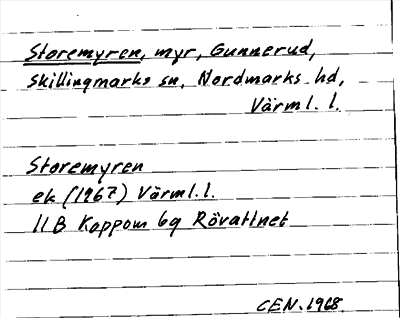 Storemyren, myr, Gunnerud,
Skillingmarks sn, Nordmarks hd,
Värml. l.
Storemyren
ek (1967) Värml. l.
11B Koppom 6g Rövattnet
CEN. 1968.